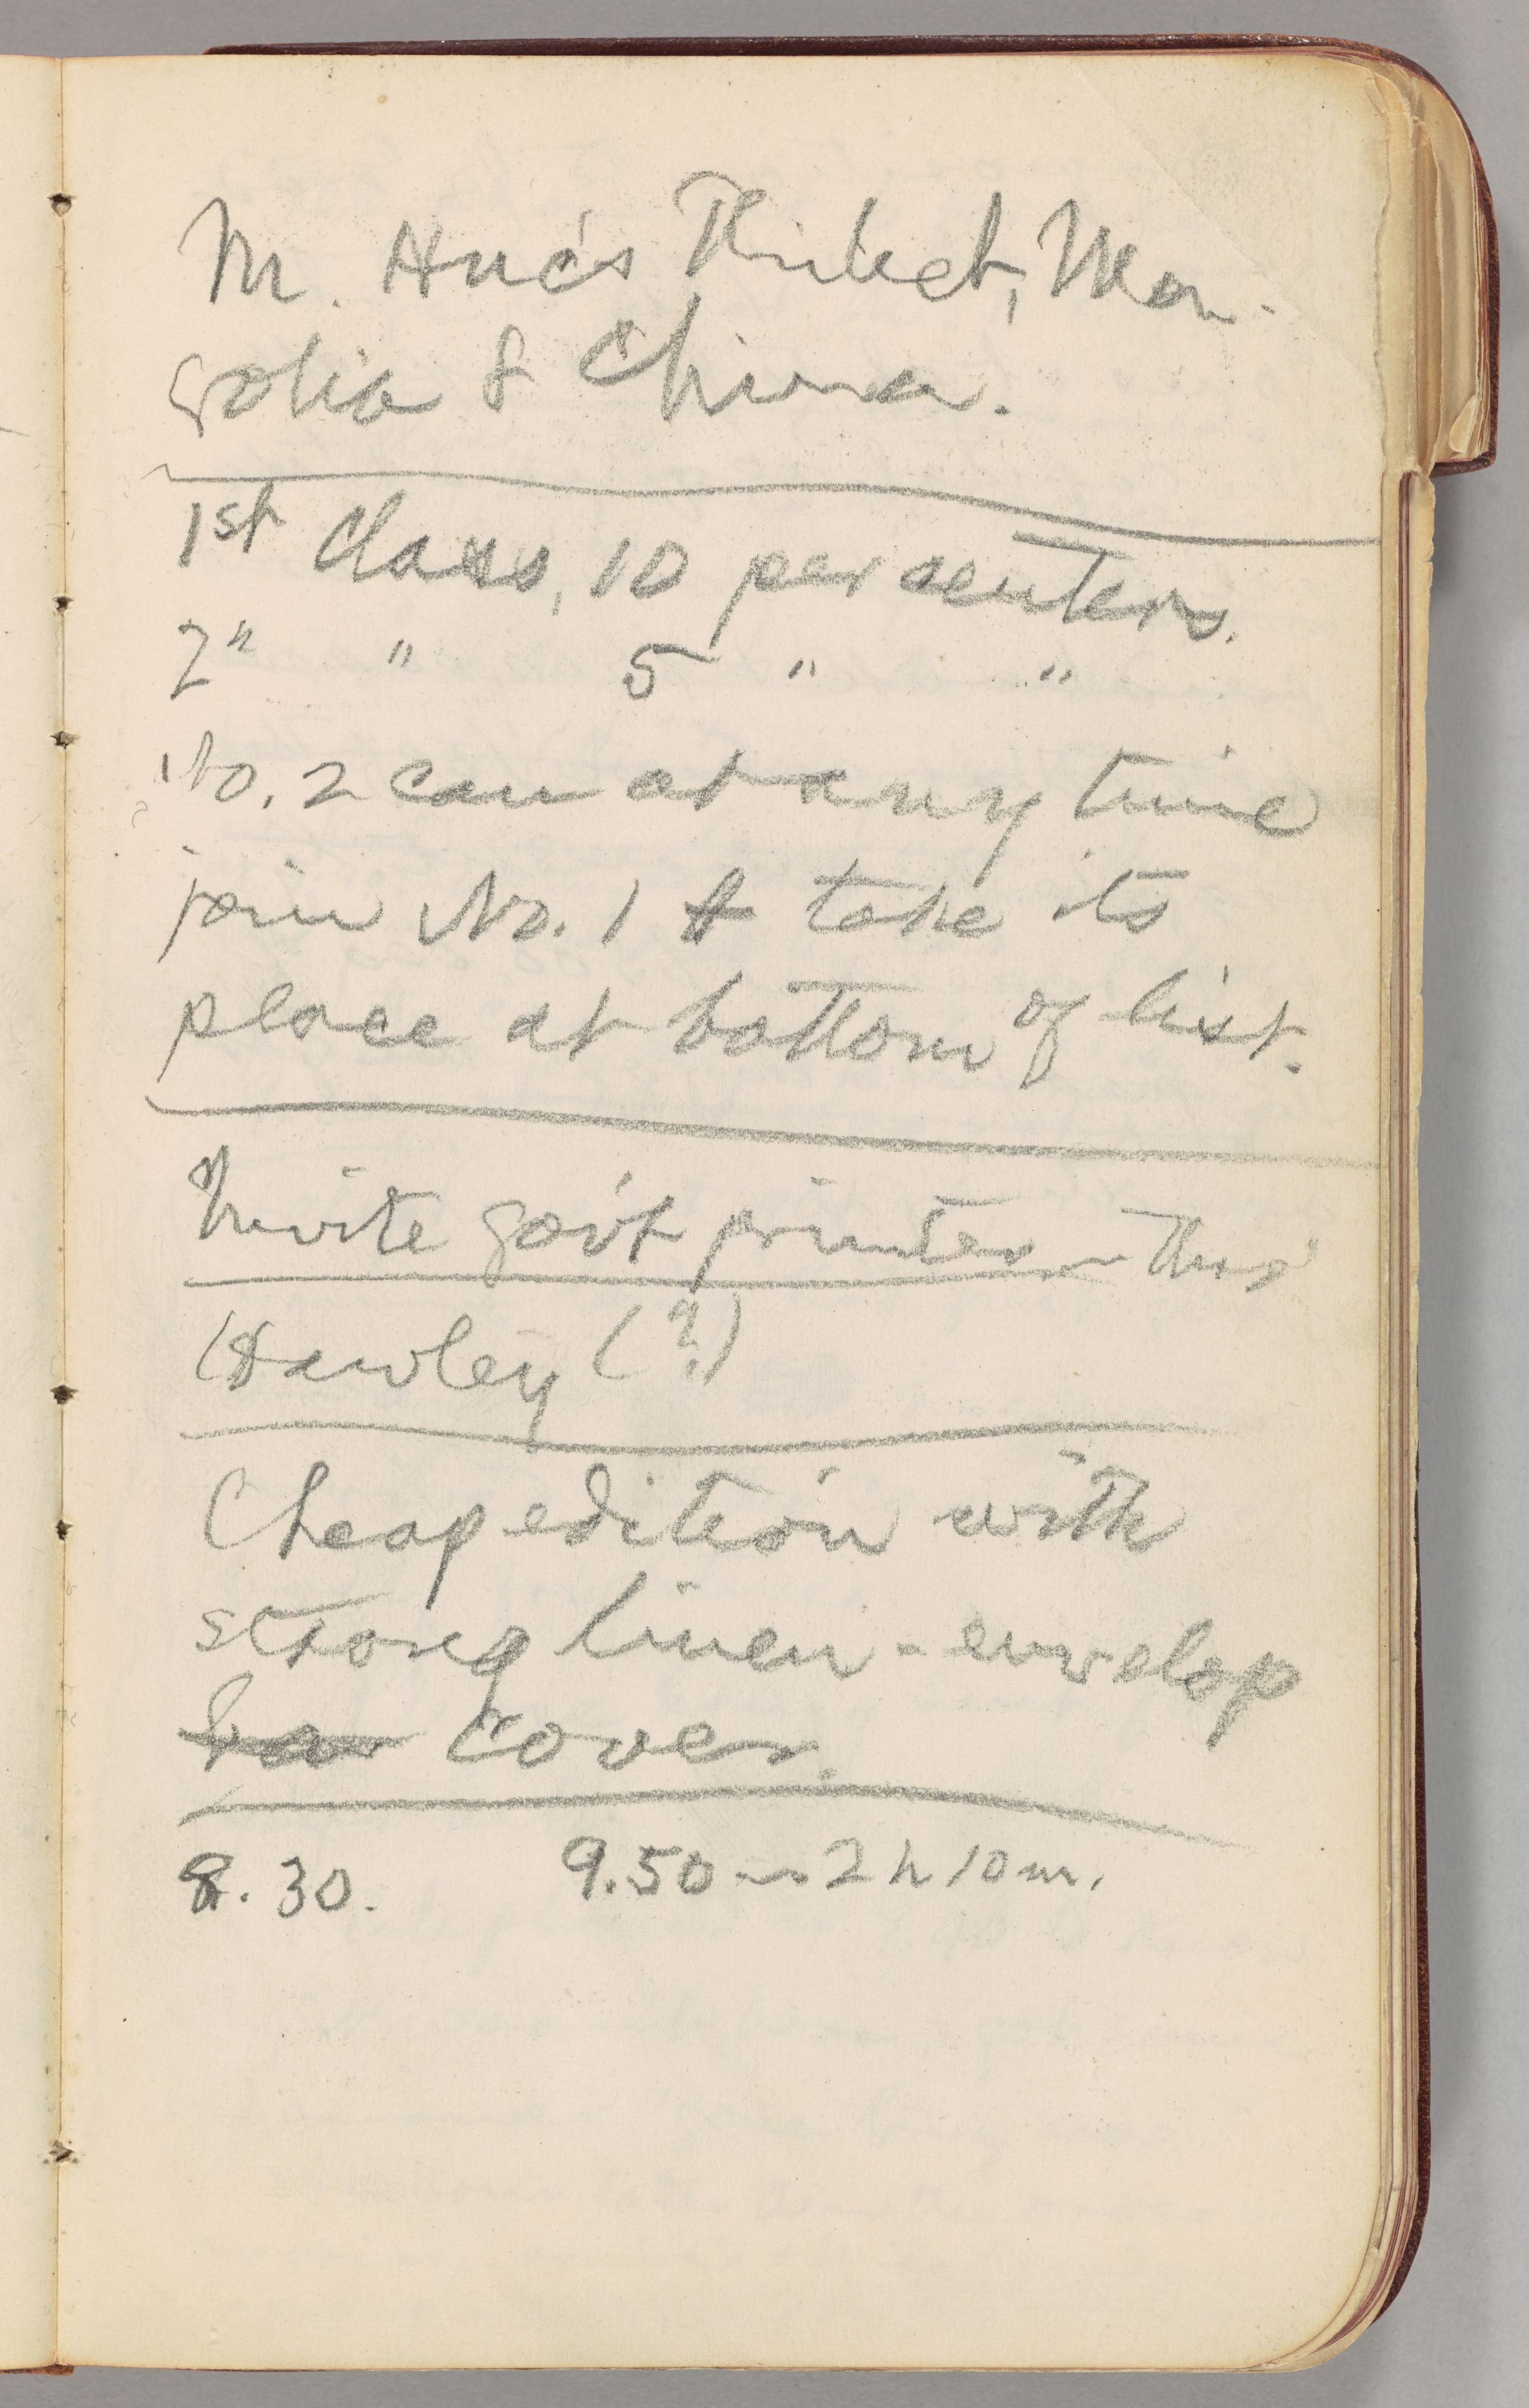 M. Huc's Thibet, Mon-
golia & China.
1st Class, 10 per centers.
2" " 5 " "
No. 2 can at any time
join No. 1 & take its
place at bottom of list.
Invite gov't printer— thro'
Hawley (?)
Cheap edition with
strong linen-envelop
cover.
8.30. 9.50 — 2 h 10 m.